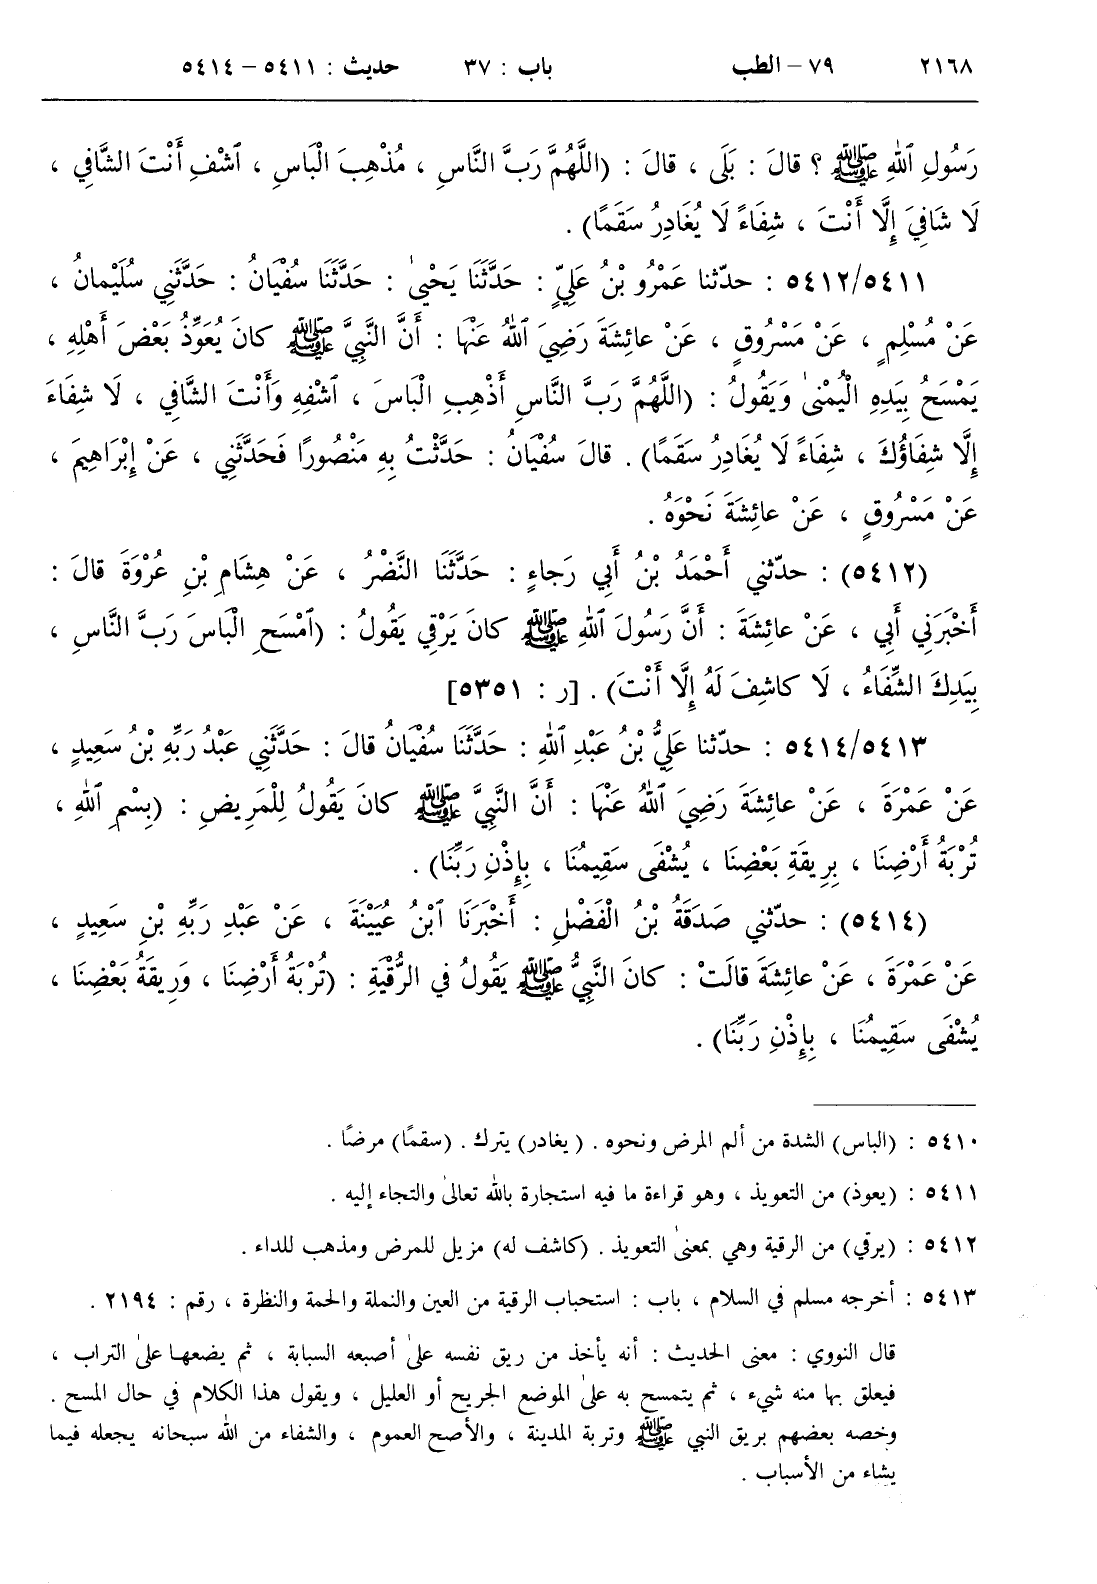 ٢١٦٨ ٧٩ – الطب باب : ٣٧ حديث : ٥٤١١ – ٥٤١٤
رَسُولِ ٱللهِ ﷺ ؟ قالَ : بَلَى ، قالَ : (اللَّهُمَّ رَبَّ النَّاسِ ، مُذْهِبَ الْبَاسِ ، ٱشْفِ أَنْتَ الشَّافِي ،
لَا شَافِيَ إِلَّا أَنْتَ ، شِفَاءً لَا يُغَادِرُ سَقَمًا) .
٥٤١٢/٥٤١١ : حدّثنا عَمْرُو بْنُ عَلِيٍّ : حَدَّثَنَا يَحْيىٰ : حَدَّثَنَا سُفْيَانُ : حَدَّثَنِي سُلَيْمانُ ،
عَنْ مُسْلِمٍ ، عَنْ مَسْرُوقٍ ، عَنْ عائِشَةَ رَضِيَ ٱللهُ عَنْهَا : أَنَّ النَّبِيَّ ﷺ كانَ يُعَوِّذُ بَعْضَ أَهْلِهِ ،
يَمْسَحُ بِيَدِهِ الْيُمْنىٰ وَيَقُولُ : (اللَّهُمَّ رَبَّ النَّاسِ أَذْهِبِ الْبَاسَ ، ٱشْفِهِ وَأَنْتَ الشَّافِي ، لَا شِفَاءَ
إِلَّا شِفَاؤُكَ ، شِفَاءً لَا يُغَادِرُ سَقَمًا) . قالَ سُفْيَانُ : حَدَّثْتُ بِهِ مَنْصُورًا فَحَدَّثَنِي ، عَنْ إِبْرَاهِيمَ ،
عَنْ مَسْرُوقٍ ، عَنْ عائِشَةَ نَحْوَهُ .
(٥٤١٢) : حدّثني أَحْمَدُ بْنُ أَبِي رَجاءٍ : حَدَّثَنَا النَّضْرُ ، عَنْ هِشَامِ بْنِ عُرْوَةَ قالَ :
أَخْبَرَنِي أَبِي ، عَنْ عائِشَةَ : أَنَّ رَسُولَ ٱللهِ ﷺ كانَ يَرْقِي يَقُولُ : (ٱمْسَحِ الْبَاسَ رَبَّ النَّاسِ ،
بِيَدِكَ الشِّفَاءُ ، لَا كاشِفَ لَهُ إِلَّا أَنْتَ) . [ر : ٥٣٥١]
٥٤١٤/٥٤١٣ : حدّثنا عَلِيُّ بْنُ عَبْدِ ٱللهِ : حَدَّثَنَا سُفْيَانُ قالَ : حَدَّثَنِي عَبْدُ رَبِّهِ بْنُ سَعِيدٍ ،
عَنْ عَمْرَةَ ، عَنْ عائِشَةَ رَضِيَ ٱللهُ عَنْهَا : أَنَّ النَّبِيَّ ﷺ كانَ يَقُولُ لِلْمَرِيضِ : (بِسْمِ ٱللهِ ،
تُرْبَةُ أَرْضِنَا ، بِرِيقَةِ بَعْضِنَا ، يُشْفَى سَقِيمُنَا ، بِإِذْنِ رَبِّنَا) .
(٥٤١٤) : حدّثني صَدَقَةُ بْنُ الْفَضْلِ : أَخْبَرَنَا ٱبْنُ عُيَيْنَةَ ، عَنْ عَبْدِ رَبِّهِ بْنِ سَعِيدٍ ،
عَنْ عَمْرَةَ ، عَنْ عائِشَةَ قالَتْ : كانَ النَّبِيُّ ﷺ يَقُولُ في الرُّقْيَةِ : (تُرْبَةُ أَرْضِنَا ، وَرِيقَةُ بَعْضِنَا ،
يُشْفَى سَقِيمُنَا ، بِإِذْنِ رَبِّنَا) .
٥٤١٠ : (الباس) الشدة من ألم المرض ونحوه . (يغادر) يترك . (سقمًا) مرضًا .
٥٤١١ : (يعوذ) من التعويذ ، وهو قراءة ما فيه استجارة بالله تعالىٰ والتجاء إليه .
٥٤١٢ : (يرقي) من الرقية وهي بمعنىٰ التعويذ . (كاشف له) مزيل للمرض ومذهب للداء .
٥٤١٣ : أخرجه مسلم في السلام ، باب : استحباب الرقية من العين والنملة والحمة والنظرة ، رقم : ٢١٩٤ .
قال النووي : معنى الحديث : أنه يأخذ من ريق نفسه علىٰ أصبعه السبابة ، ثم يضعها علىٰ التراب ،
فيعلق بها منه شيء ، ثم يتمسح به علىٰ الموضع الجريح أو العليل ، ويقول هذا الكلام في حال المسح .
وخصه بعضهم بريق النبي ﷺ وتربة المدينة ، والأصح العموم ، والشفاء من الله سبحانه يجعله فيما
يشاء من الأسباب .